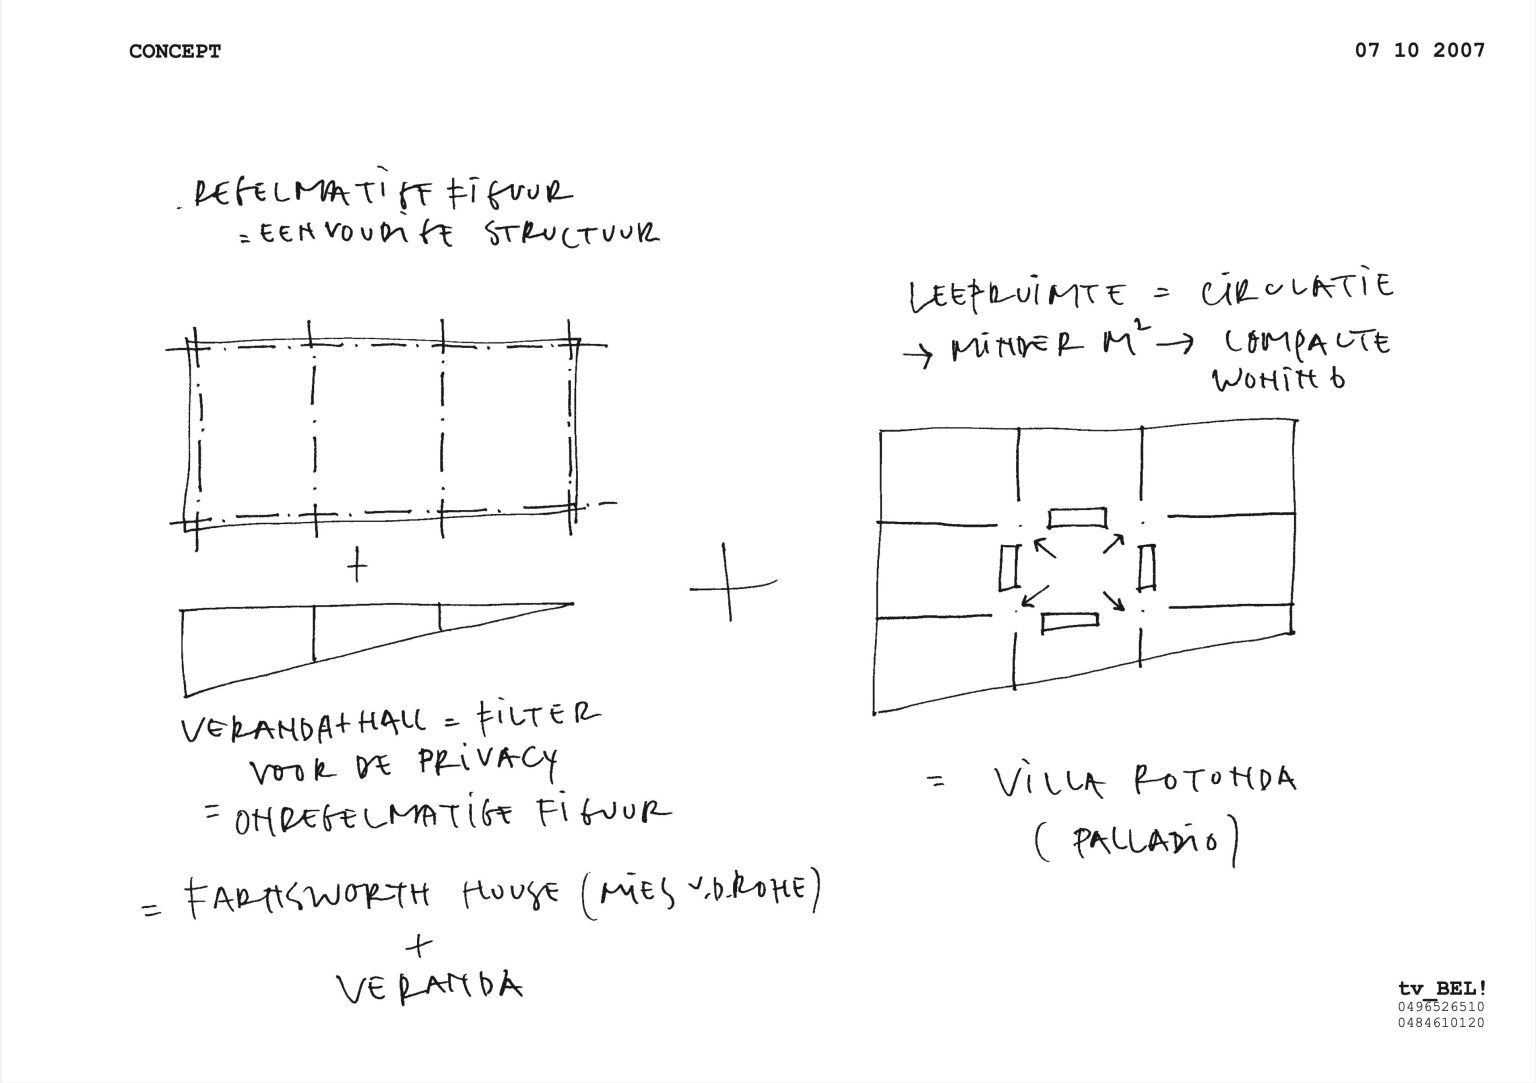 CONCEPT
07 10 2007
REGELMATIGE FIGUUR
= EENVOUDIGE STRUCTUUR
LEEFRUIMTE = CIRCULATIE
→ MINDER M² → COMPACTE
WONING
+
+
VERANDA+HALL = FILTER
VOOR DE PRIVACY
= ONREGELMATIGE FIGUUR
= FARNSWORTH HOUSE (MIES V.D.ROHE)
+
VERANDA
= VILLA ROTONDA
(PALLADIO)
tv_BEL!
0496526510
0484610120